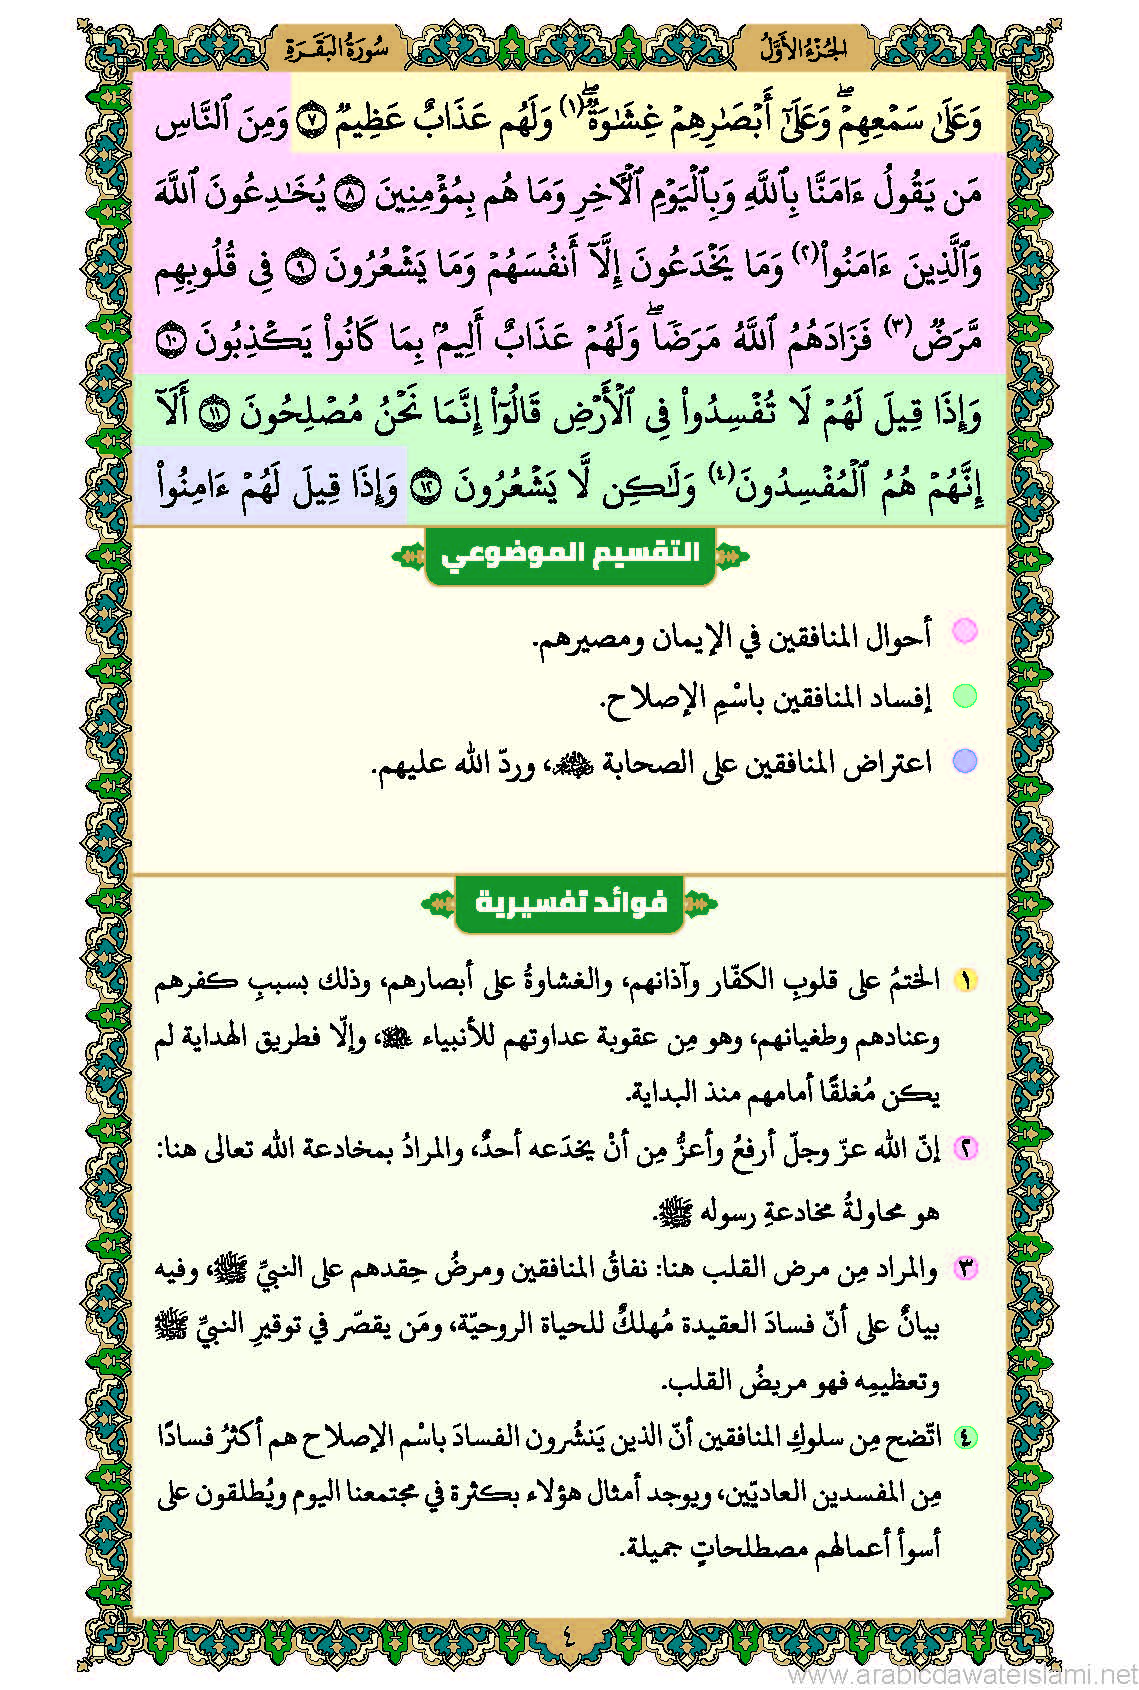 الجُزْءُ الأَوَّلُ
سُورَةُ البَقَرَةِ
وَعَلَىٰ سَمْعِهِمْۖ وَعَلَىٰٓ أَبْصَٰرِهِمْ غِشَٰوَةٌۖ(١) وَلَهُمْ عَذَابٌ عَظِيمٌ ٧ وَمِنَ ٱلنَّاسِ
مَن يَقُولُ ءَامَنَّا بِٱللَّهِ وَبِٱلْيَوْمِ ٱلْأٓخِرِ وَمَا هُم بِمُؤْمِنِينَ ٨ يُخَٰدِعُونَ ٱللَّهَ
وَٱلَّذِينَ ءَامَنُوا۟(٢) وَمَا يَخْدَعُونَ إِلَّآ أَنفُسَهُمْ وَمَا يَشْعُرُونَ ٩ فِى قُلُوبِهِم
مَّرَضٌ(٣) فَزَادَهُمُ ٱللَّهُ مَرَضًاۖ وَلَهُمْ عَذَابٌ أَلِيمٌۢ بِمَا كَانُوا۟ يَكْذِبُونَ ١٠
وَإِذَا قِيلَ لَهُمْ لَا تُفْسِدُوا۟ فِى ٱلْأَرْضِ قَالُوٓا۟ إِنَّمَا نَحْنُ مُصْلِحُونَ ١١ أَلَآ
إِنَّهُمْ هُمُ ٱلْمُفْسِدُونَ(٤) وَلَٰكِن لَّا يَشْعُرُونَ ١٢ وَإِذَا قِيلَ لَهُمْ ءَامِنُوا۟
التقسيم الموضوعي
أحوال المنافقين في الإيمان ومصيرهم.
إفساد المنافقين باسْمِ الإصلاح.
اعتراض المنافقين على الصحابة ، وردّ الله عليهم.
فوائد تفسيرية
١ الختمُ على قلوبِ الكفّار وآذانهم، والغشاوةُ على أبصارهم، وذلك بسببِ كفرهم
وعنادهم وطغيانهم، وهو مِن عقوبة عداوتهم للأنبياء ، وإلّا فطريق الهداية لم
يكن مُغلقًا أمامهم منذ البداية.
٢ إنّ الله عزّ وجلّ أرفعُ وأعزُّ مِن أنْ يخدَعه أحدٌ، والمرادُ بمخادعة الله تعالى هنا:
هو محاولةُ مخادعةِ رسوله ﷺ.
٣ والمراد مِن مرض القلب هنا: نفاقُ المنافقين ومرضُ حِقدهم على النبيِّ ﷺ، وفيه
بيانٌ على أنّ فسادَ العقيدة مُهلكٌ للحياة الروحيّة، ومَن يقصّر في توقيرِ النبيِّ ﷺ
وتعظيمِه فهو مريضُ القلب.
٤ اتّضح مِن سلوكِ المنافقين أنّ الذين يَنشُرون الفسادَ باسْم الإصلاح هم أكثرُ فسادًا
مِن المفسدين العاديّين، ويوجد أمثال هؤلاء بكثرة في مجتمعنا اليوم ويُطلقون على
أسوأ أعمالهم مصطلحاتٍ جميلة.
٤
www.arabicdawateislami.net